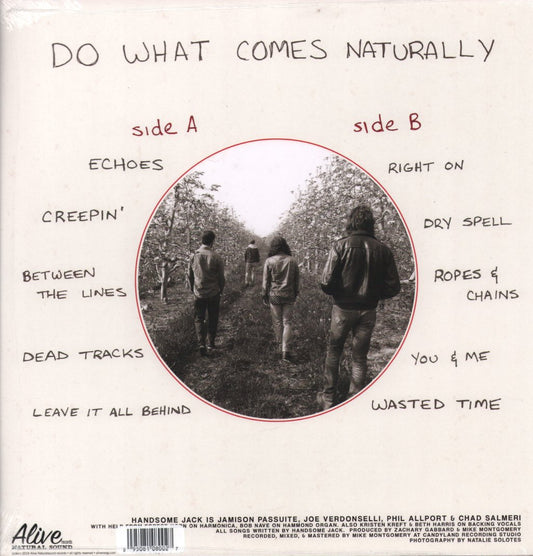 DO WHAT COMES NATURALLY
side A
ECHOES
CREEPIN'
BETWEEN
THE LINES
DEAD TRACKS
LEAVE IT ALL BEHIND
side B
RIGHT ON
DRY SPELL
ROPES &
CHAINS
YOU & ME
WASTED TIME
HANDSOME JACK IS JAMISON PASSUITE, JOE VERDONSELLI, PHIL ALLPORT & CHAD SALMERI
WITH HELP FROM ON HARMONICA, BOB NAVE ON HAMMOND ORGAN. ALSO KRISTEN KREFT & BETH HARRIS ON BACKING VOCALS
ALL SONGS WRITTEN BY HANDSOME JACK. PRODUCED BY ZACHARY GABBARD & MIKE MONTGOMERY
RECORDED, MIXED, & MASTERED BY MIKE MONTGOMERY AT CANDYLAND RECORDING STUDIO
PHOTOGRAPHY BY NATALIE SOLOTES
Alive
records
NATURAL SOUND